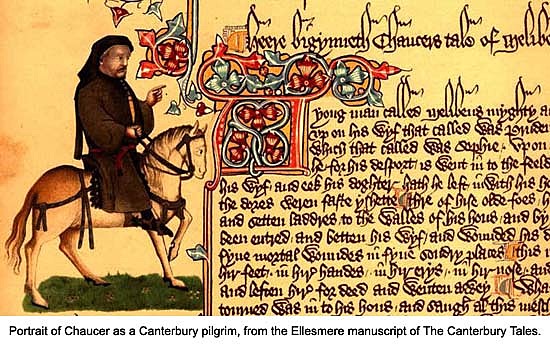 Heere bigynneth Chaucers tale of Melibe
A yong man called Melibeus myghty a
up on his wyf that called was Pruden
which that called was Sophie. Upon
he for his desport is went in to the feeld
his wyf and eek his doghter hath he left inwith his h
the dores weren faste yshette Thre of hise olde foes h
and setten laddres to the walles of his hous and by
been entred and betten his wyf and wounded his d
fyue mortal woundes in fyue sondry places This i
hir feet in hir handes in hir erys in hir nose and
and leften hir for deed and wenten awey Wha
tourned was in to his hous and saugh al this mesch
Portrait of Chaucer as a Canterbury pilgrim, from the Ellesmere manuscript of The Canterbury Tales.